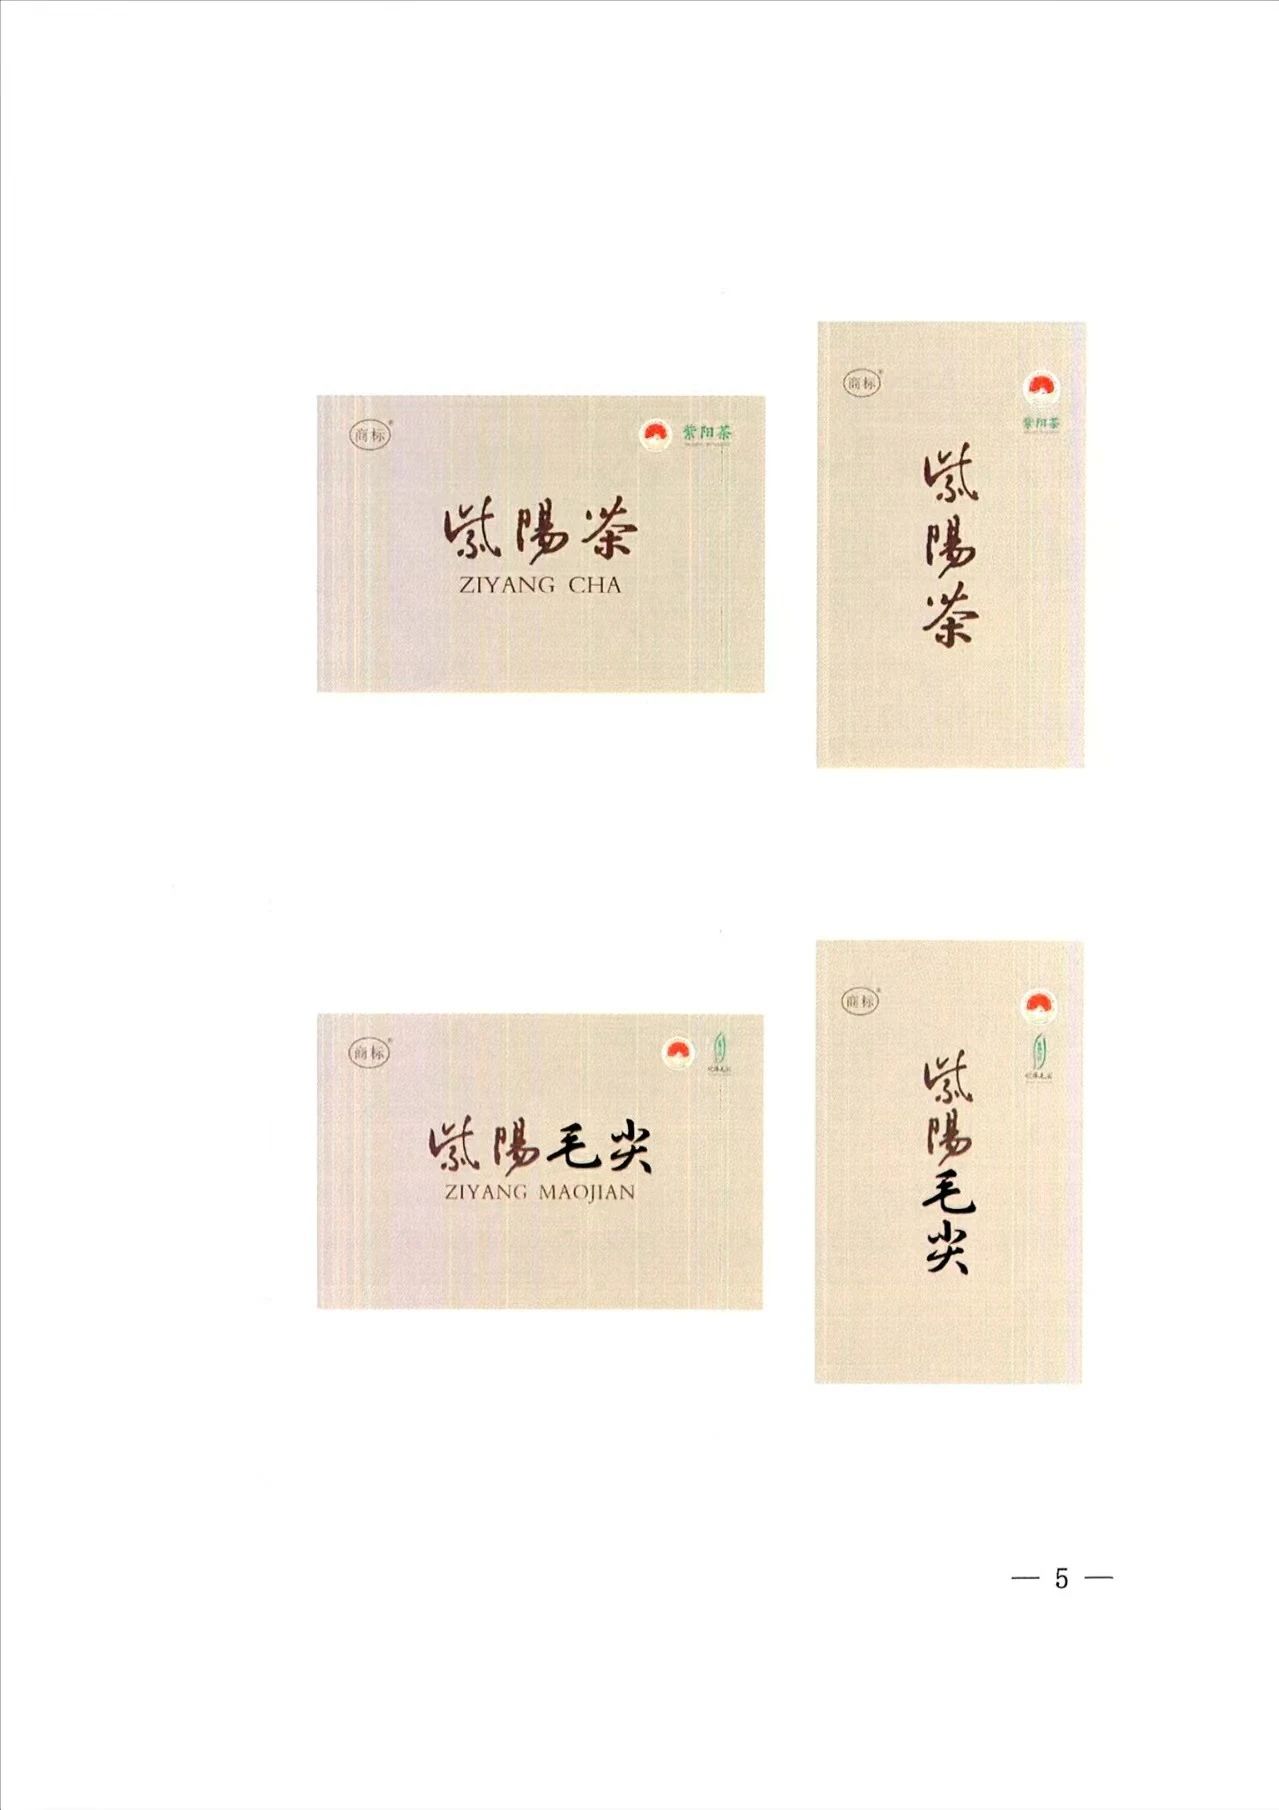 商标®
紫阳茶
紫陽茶
ZIYANG CHA
商标®
紫阳茶
紫陽茶
商标®
紫陽毛尖
ZIYANG MAOJIAN
商标®
紫陽毛尖
— 5 —